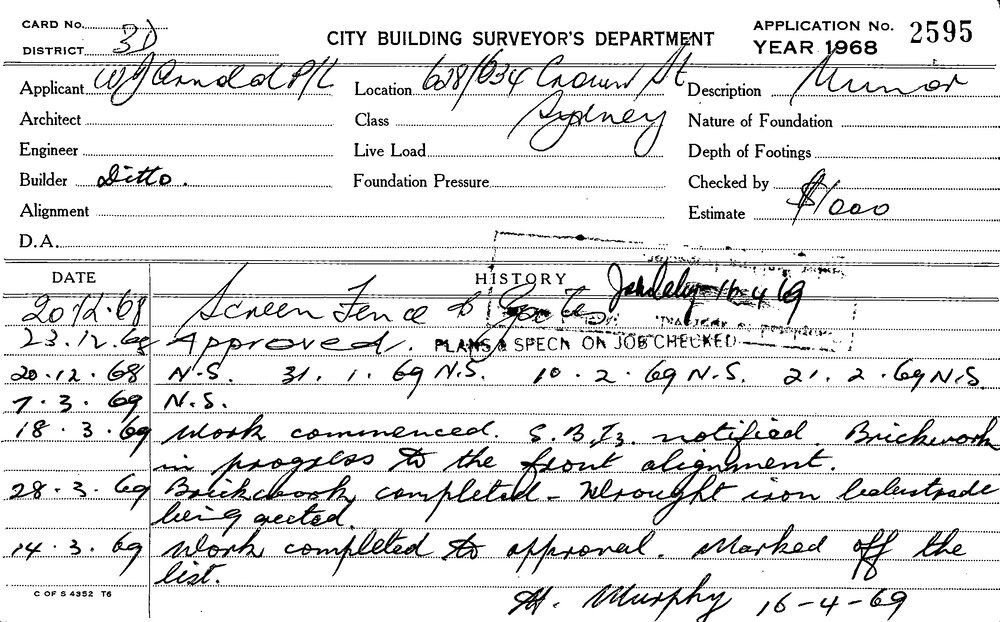 CARD No.
DISTRICT 3D
CITY BUILDING SURVEYOR'S DEPARTMENT
APPLICATION No. 2595
YEAR 1968
Applicant W J Arnold P/L Location 628/634 Crown St Description Minor
Architect Class Sydney Nature of Foundation
Engineer Live Load Depth of Footings
Builder Ditto. Foundation Pressure Checked by
Alignment Estimate $1000
D.A.
DATE HISTORY 16-4-69
20.12.68 Screen Fence & Gate
23.12.68 Approved. PLANS & SPECN ON JOB CHECKED
20.12.68 N.S. 31.1.69 N.S. 10.2.69 N.S. 21.2.69 N.S.
7.3.69 N.S.
18.3.69 Work commenced. S.B.I. notified. Brickwork
in progress to the front alignment.
28.3.69 Brickwork completed - Wrought iron balustrade
being erected.
14.3.69 Work completed to approval. Marked off the
list.
C OF S 4352 T6
H. Murphy 16-4-69